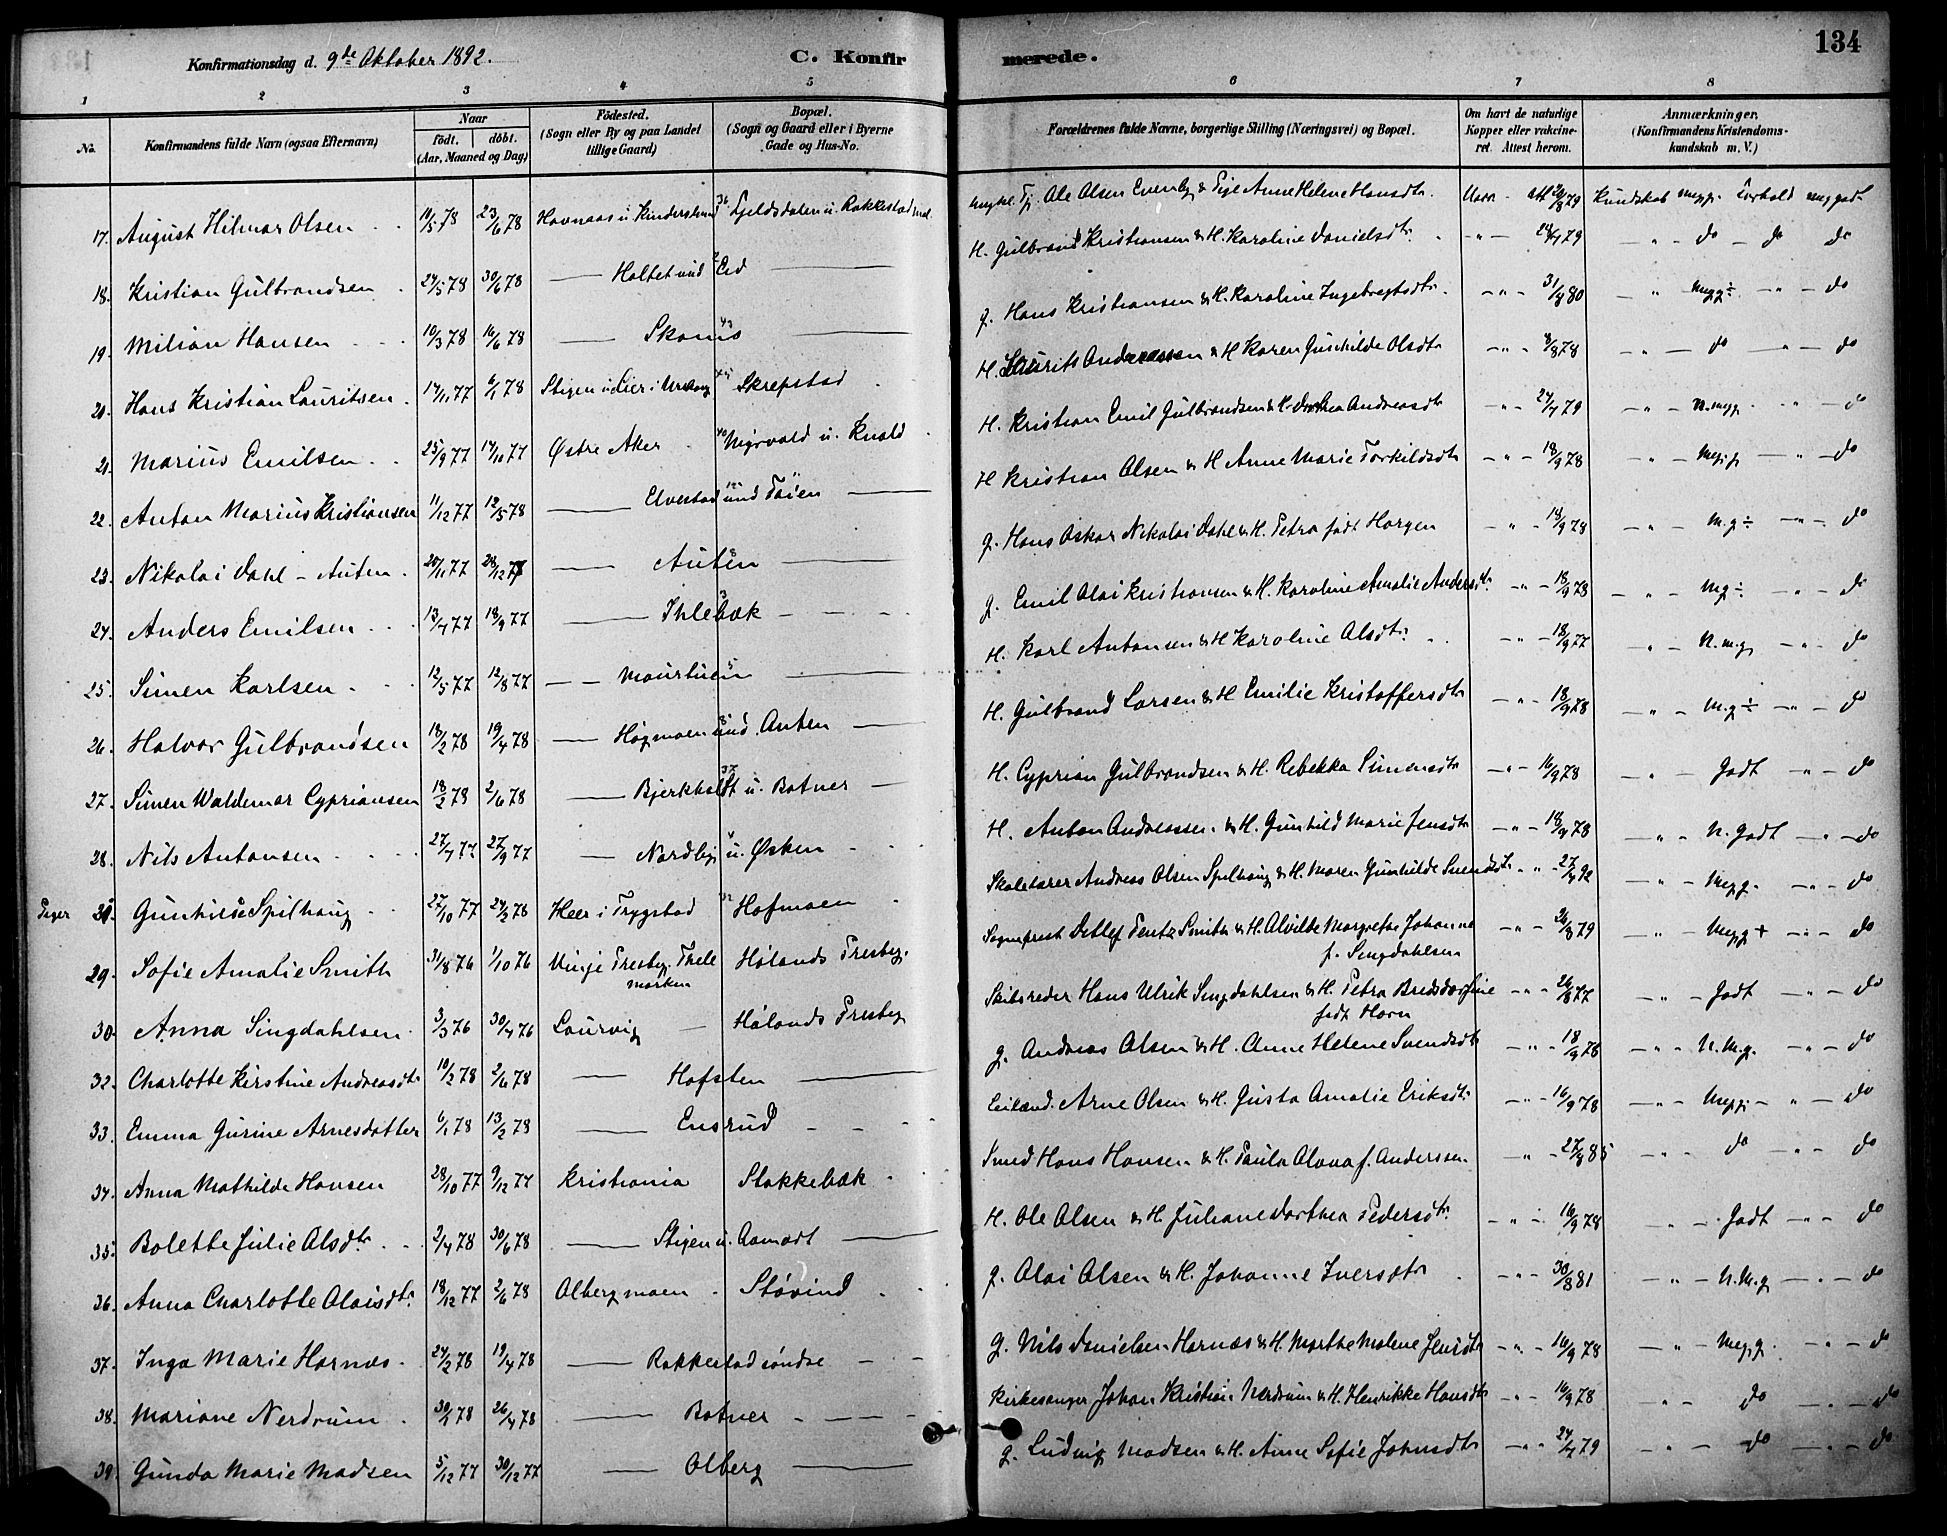 134
Konfirmationsdag d. 9de Oktober 1892. C. Konfirmerede.
1 2 3 4 5 6 7 8
No. Konfirmandens fulde Navn (ogsaa Efternavn) Naar födt. döbt. (Aar, Maaned og Dag) Födested. (Sogn eller By og paa Landet tillige Gaard) Bopæl. (Sogn og Gaard eller i Byerne Gade og Hus-No. Forældrenes fulde Navne, borgerlige Stilling (Næringsvei) og Bopæl. Om havt de naturlige Kopper eller vakcineret. Attest herom. Anmærkninger. (Konfirmandens Kristendomskundskab m. V.)
17. August Hilmar Olsen 11/5 78 23/6 78 Havnaas u. Tj. Ole Olsen Evenby & Pige Anne Helene Hansdtr. 26/8 79 Kundskab meg g. Forhold meg godt
18. Kristian Gulbrandsen 24/5 78 30/6 78 — Holtet und Eid — H. Gulbrand Kristiansen & H. Karoline Danielsdtr. — " — 79 — " — do — do do
19. Milian Hansen 10/3 78 16/6 78 — — g. Hans Kristiansen & H. Karoline Ingebregtsdtr. — " — 80 — " — meg g ÷ — " — do
20. Hans Kristian Lauritsen 17/11 77 6/1 78 Stigen u. Lier i Urskoug Skrepstad H. Laurits Andreassen & H. Karen Gunhilde Olsdtr — " — 8/8 78 — " — do — " — do
21. Marius Emilsen 25/9 77 14/10 77 Østre Aker u. Knold H. Kristian Emil Gulbrandsen & H. Dorthea Andreasdtr — " — 79 — " — N. meg g. — " — do
22. Anton Marius Kristiansen 11/12 77 12/5 78 — Elvestad und Toien — H. Kristian Olsen & H. Anne Marie Torkildsdtr — " — 18/9 78 — " — meg g — " — do
23. Nikolai Dahl - Auten 20/11 77 28/12 77 — Auten — g. Hans Oskar Nikolai Dahl & H. Petra født Horgen — " — 18/9 78 — " — M. g ÷ — " — do
24. Anders Emilsen 13/7 77 18/9 77 — Ihlebæk — g. Emil Olai Kristiansen & H. Karoline Amalie Andersdtr. — " — 18/9 78 — " — Mg ÷ — " — do
25. Simen Karlsen 12/5 77 12/8 77 — Maurtuen — H. Karl Antonsen & H. Karoline Olsdtr. — " — 18/9 77 — " — N. m. g — " — do
26. Halvor Gulbrandsen 18/2 78 19/4 78 — Høgmoen und. Auten — H. Gulbrand Larsen & H. Emilie Kristoffersdtr — " — 18/9 78 — " — M. g ÷ — " — do
27. Simen Waldemar Cypriansen 18/2 78 2/6 78 — Bjerkholdt u. Botner — H. Cyprian Gulbrandsen & H. Rebekka Simensdtr — " — 16/9 78 — " — Godt — " — do
28. Nils Antonsen 27/7 77 27/9 77 — Nordby u. Økern H. Anton Andreassen & H. Gunhild Marie Jensdtr — " — 18/9 78 — " — N. Godt — " — do
Piger Gunhilde Spilhaug 27/10 77 24/2 78 Heer i Trygstad Hofmoen Skolelærer Andreas Olsen Spilhaug & H. Maren Gunhilde Svendsdtr. " — 92 — " — Meg g. — " — do
29. Sofie Amalie Smith 31/8 76 1/10 76 Vinje Prestegj. Thelemarken Hølands Prestegj. Sogneprest Detlef Tentz Smith & H. Alvilde Margrethe Johanne f. Smgdahlsen — " — 26/8 79 — " — Meg g + — " — do
30. Anna Singdahlsen 3/3 76 30/4 76 Laurvig Hølands Prestegj Skibsreder Hans Ulrik Singdahlsen & H. Petra Bredsdorfine født Horn — " — 26/8 77 — " — Godt — " — do
32. Charlotte Kirstine Andreasdtr 10/2 78 2/6 78 — Hofsten — g. Andreas Olsen & H. Anne Helene Svendsdtr — " — 18/9 78 — " — N. M. g. — " — do
33. Emma Gurine Arnesdatter 6/1 78 13/2 78 — Ensrud Leilænd. Arne Olsen & H. Gusta Amalie Eriksdtr. — " — 16/9 78 — " — Meg g — " — do
34. Anna Mathilde Hansen 28/10 77 9/12 77 Kristiania Stokkebæk Smed Hans Hansen & H. Paula Olava f. Anderssen — " — 27/8 85 — " — do — " — do
35. Bolette Julie Olsdtr. 2/4 78 30/6 78 — Stigen u. Aamodt — H. Ole Olsen & H. Juliane Dorthea Pedersdtr. — " — 16/9 78 — " — Godt — " — do
36. Anna Charlotte Olaisdtr. 18/12 77 2/6 78 Olbergmoen Støvind g. Olai Olsen & H. Johanne Iversdtr — " — 30/8 81 — " — N. M. g — " — do
37. Inga Marie Hornæs 24/2 78 19/4 78 — Rakkestad søndre g. Nils Danielsen Hornæs & H. Marthe Malene Jensdtr — " — 16/9 78 — " — Meg g. — " — do
38. Mariane Nerdrum 30/1 78 26/4 78 — Botner Kirkesanger Johan Kristian Nerdrum & H. Henrikke Hansdtr — " — 16/9 78 — " — do — " — do
39. Gunda Marie Madsen 5/12 77 30/12 77 — Olberg — g. Ludvig Madsen & H. Anne Sofie Johnsdtr — " — 79 — " — do — " — do